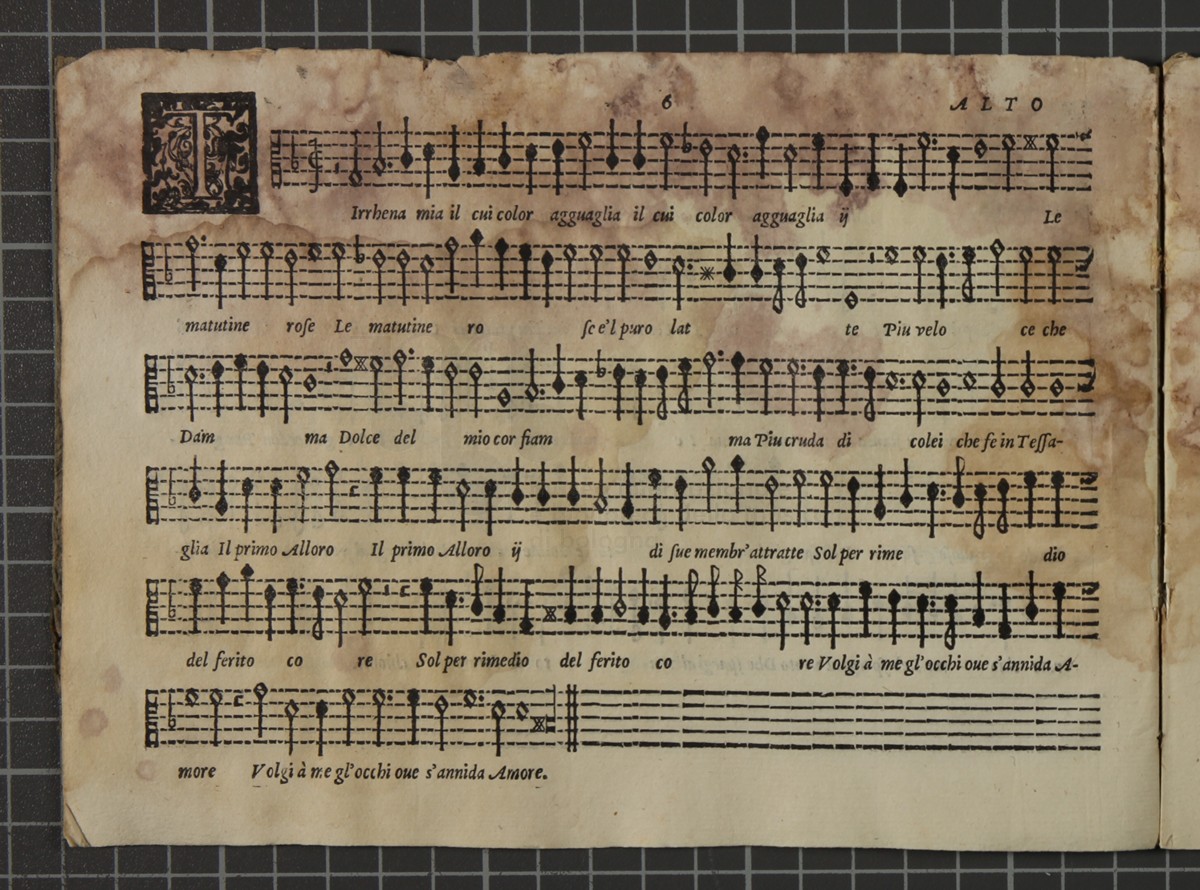 6 ALTO
TIrrhena mia il cui color agguaglia il cui color agguaglia ij Le
matutine rose Le matutine ro se e'l puro lat te Piu velo ce che
Dam ma Dolce del mio cor fiam ma Piu cruda di colei che fe in Tessa-
glia Il primo Alloro Il primo Alloro ij di sue membr'attratte Sol per rime dio
del ferito co re Sol per rimedio del ferito co re Volgi à me gl'occhi oue s'annida A-
more Volgi à me gl'occhi oue s'annida Amore.